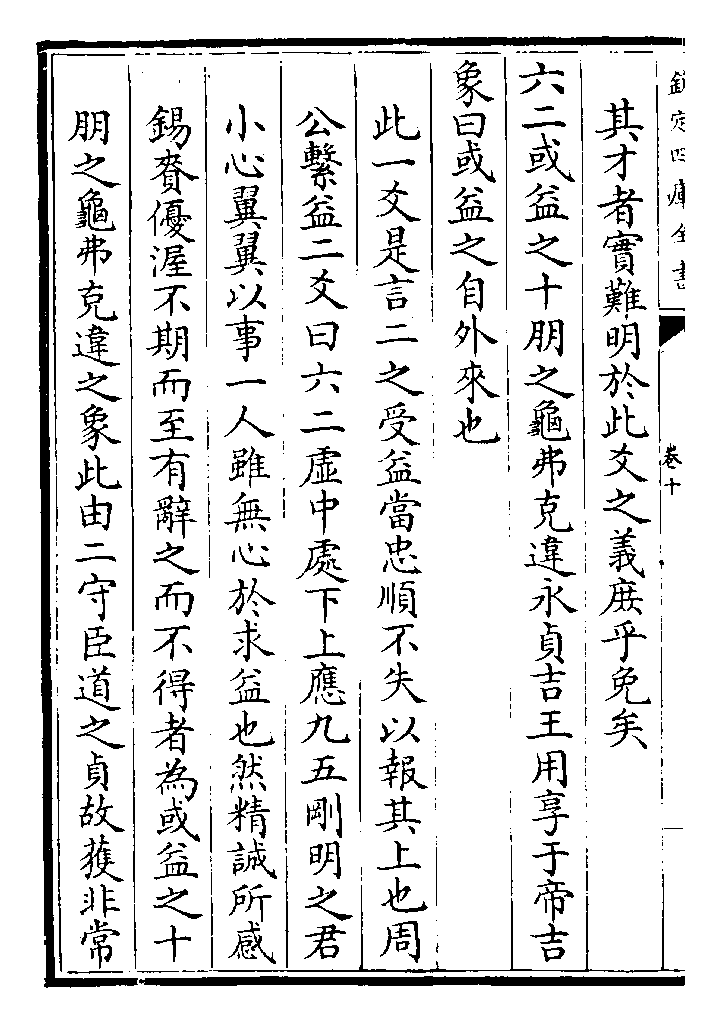 欽定四庫全書
卷十
其才者實難明於此爻之義庻乎免矣
六二或益之十朋之龜弗克違永貞吉王用享于帝吉
象曰或益之自外來也
此一爻是言二之受益當忠順不失以報其上也周
公繫益二爻曰六二虛中處下上應九五剛明之君
小心翼翼以事一人雖無心於求益也然精誠所感
錫賚優渥不期而至有辭之而不得者為或益之十
朋之龜弗克違之象此由二守臣道之貞故獲非常